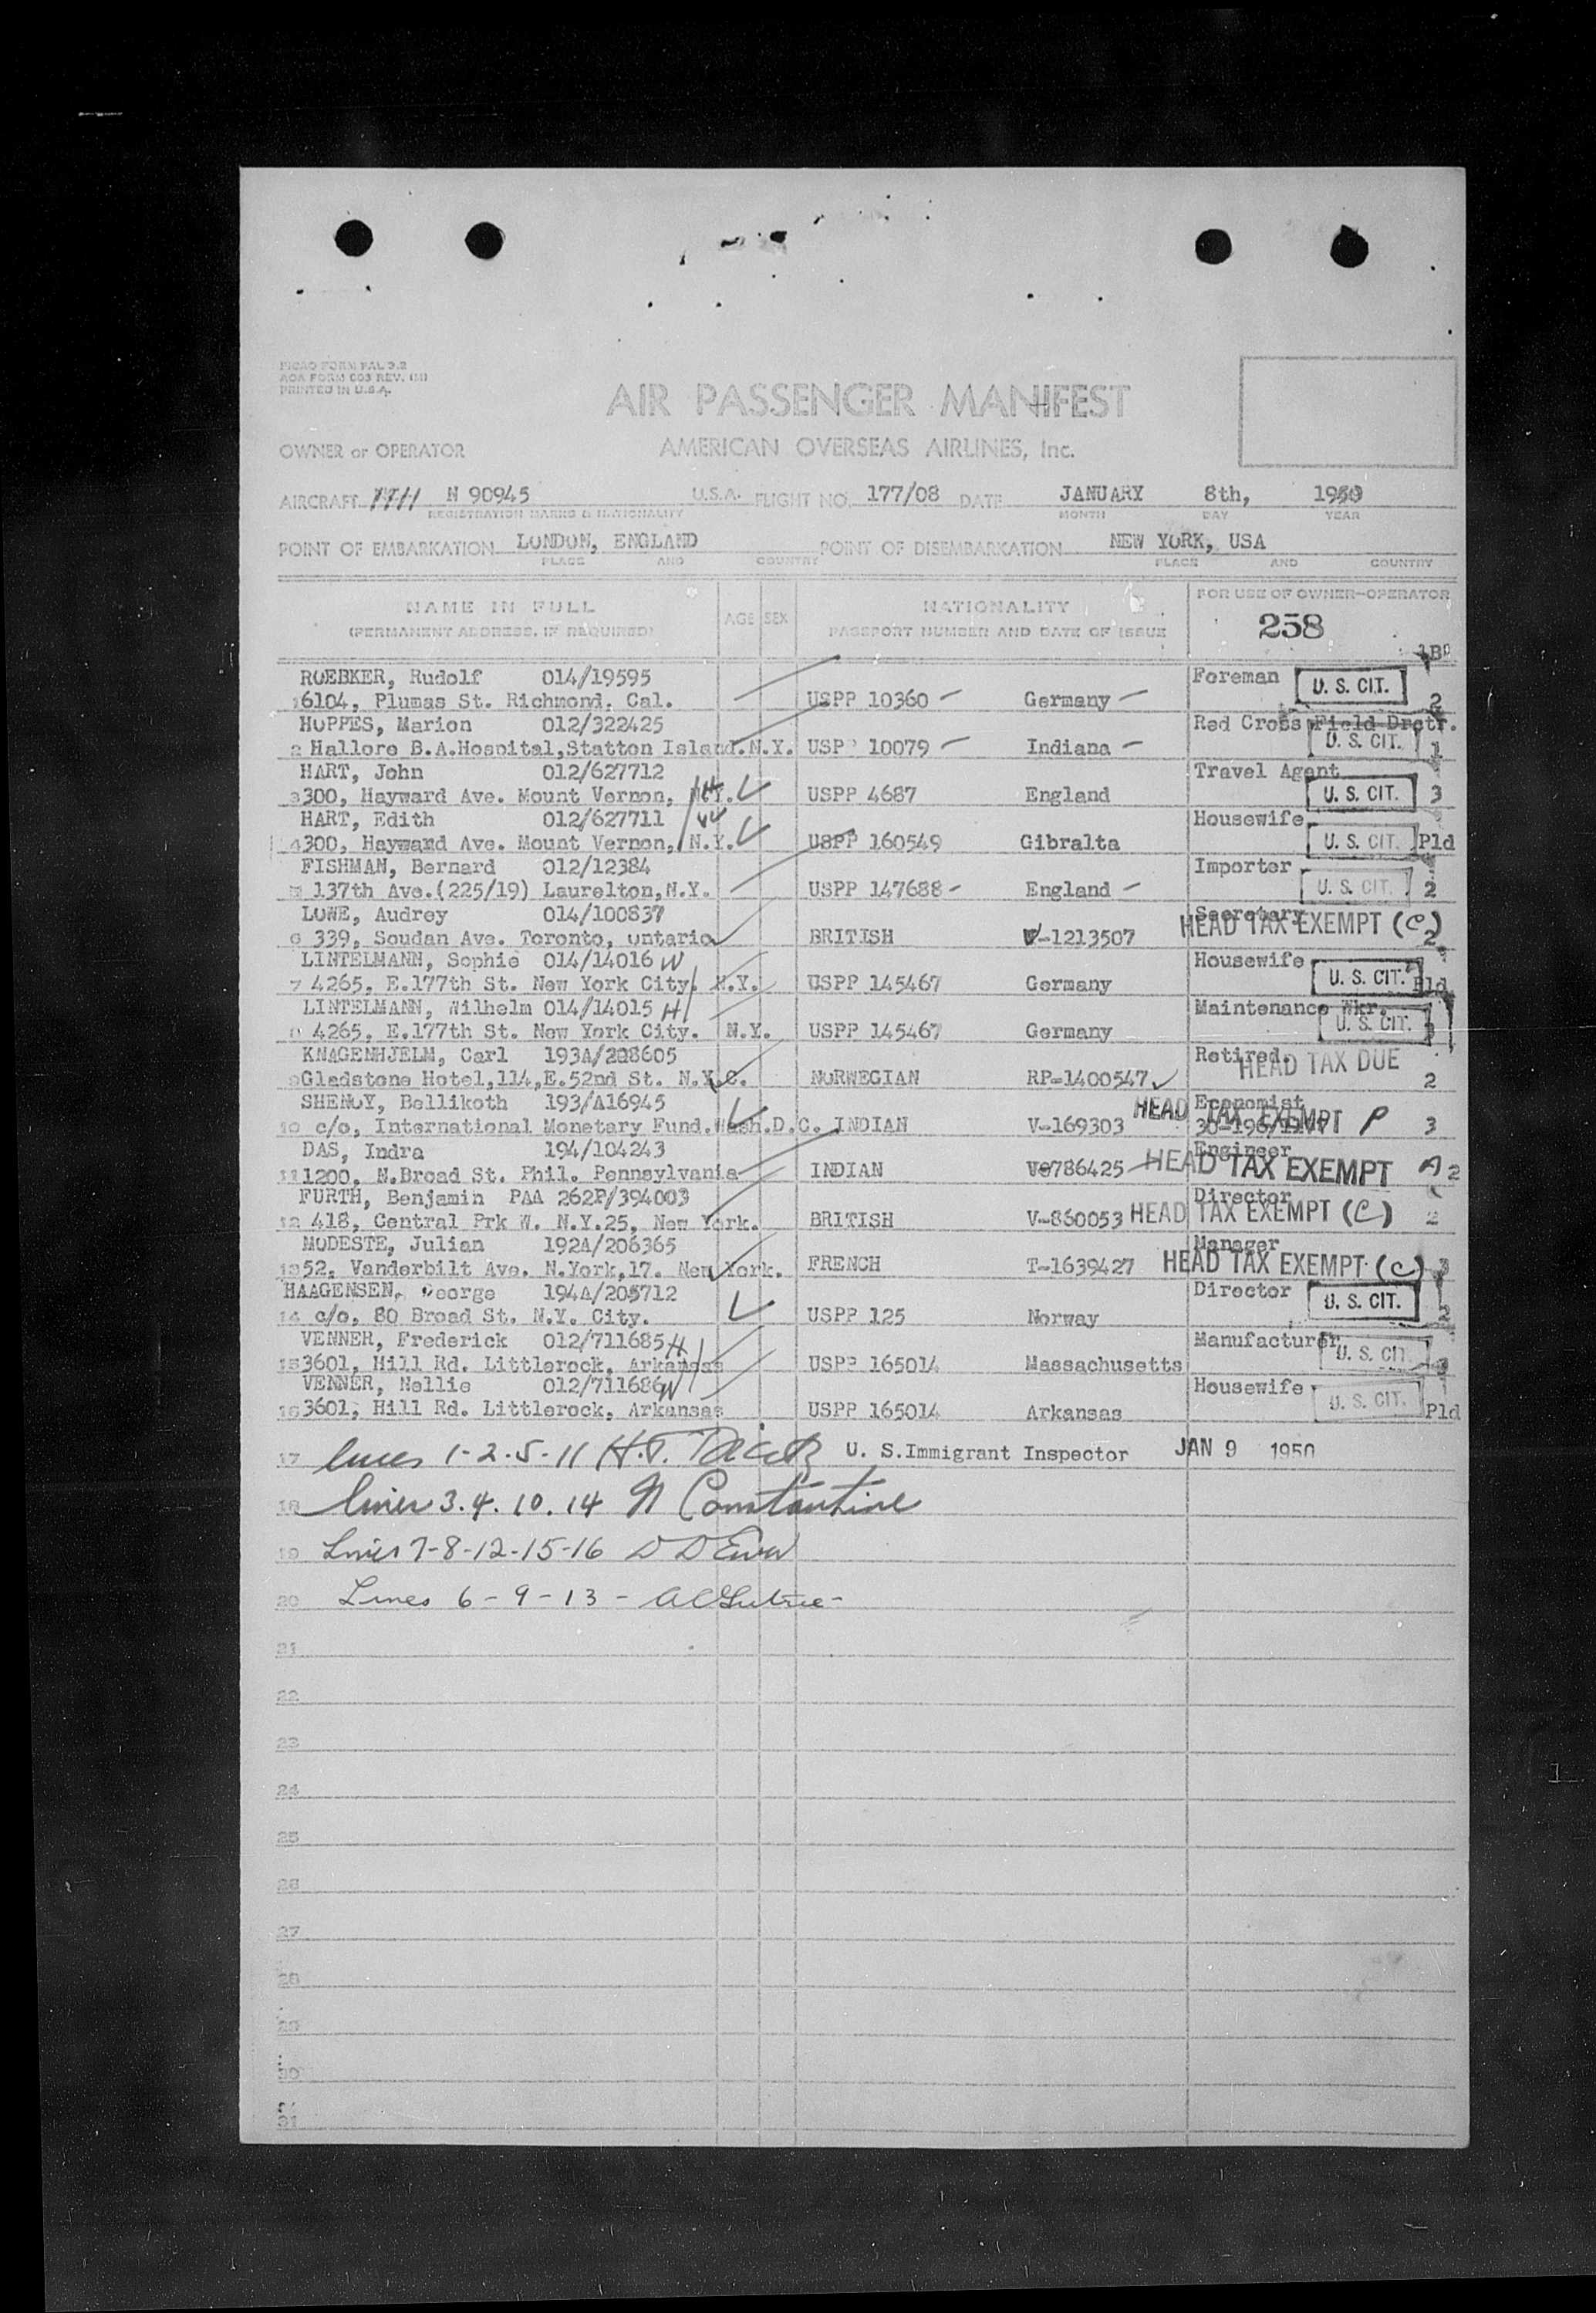 PICAO FORM PAL 3.2
AOA FORM 003 REV.
PRINTED IN U.S.A.
AIR PASSENGER MANIFEST
OWNER or OPERATOR AMERICAN OVERSEAS AIRLINES, Inc.
AIRCRAFT N 90945 U.S.A. FLIGHT NO. 177/08 DATE JANUARY 8th, 1950
REGISTRATION MARKS & NATIONALITY MONTH DAY YEAR
POINT OF EMBARKATION LONDON, ENGLAND POINT OF DISEMBARKATION NEW YORK, USA
PLACE AND COUNTRY PLACE AND COUNTRY
NAME IN FULL AGE SEX NATIONALITY FOR USE OF OWNER-OPERATOR
(PERMANENT ADDRESS, IF REQUIRED) PASSPORT NUMBER AND DATE OF ISSUE 258
ROEBKER, Rudolf 014/19595 Foreman U. S. CIT.
1 6104, Plumas St. Richmond. Cal. USPP 10360 Germany 2
HOPPES, Marion 012/322425 Red Cross Field Drctr.
2 Hallore B.A.Hospital,Statton Island.N.Y. USPP 10079 Indiana U. S. CIT. 1
HART, John 012/627712 Travel Agent
3 300, Hayward Ave. Mount Vernon, N.Y. USPP 4687 England U. S. CIT. 3
HART, Edith 012/627711 W Housewife
4 300, Hayward Ave. Mount Vernon, N.Y. USPP 160549 Gibralta U. S. CIT. Pld
FISHMAN, Bernard 012/12384 Importer
5 137th Ave.(225/19) Laurelton,N.Y. USPP 147688 England U. S. CIT. 2
LOWE, Audrey 014/100837 Secretary HEAD TAX EXEMPT (C)
6 339, Soudan Ave. Toronto, Ontario BRITISH V-1213507 2
LINTELMANN, Sophie 014/14016 W Housewife
7 4265, E.177th St. New York City. N.Y. USPP 145467 Germany U. S. CIT. Pld
LINTELMANN, Wilhelm 014/14015 H Maintenance Wkr.
8 4265, E.177th St. New York City. N.Y. USPP 145467 Germany U. S. CIT.
KNAGENHJELM, Carl 193A/208605 Retired. HEAD TAX DUE
9 Gladstone Hotel,114,E.52nd St. N.Y.C. NORWEGIAN RP-1400547 2
SHENOY, Bellikoth 193/A16945 Economist HEAD TAX EXEMPT P
10 c/o, International Monetary Fund.Wash.D.C. INDIAN V-169303 3
DAS, Indra 194/104243 Engineer
11 1200, N.Broad St. Phil. Pennsylvania INDIAN 786425 HEAD TAX EXEMPT A 2
FURTH, Benjamin PAA 262P/394003 Director
12 418, Central Prk W. N.Y.25, New York. BRITISH V-860053 HEAD TAX EXEMPT (C) 2
MODESTE, Julian 192A/206365 Manager
13 52, Vanderbilt Ave. N.York,17. New York. FRENCH T-1639427 HEAD TAX EXEMPT (C) 3
HAAGENSEN, George 194A/205712 Director U. S. CIT.
14 c/o, 80 Broad St. N.Y. City. USPP 125 Norway 2
VENNER, Frederick 012/711685 H Manufacturer U. S. CIT.
15 3601, Hill Rd. Littlerock, Arkansas USPP 165014 Massachusetts 3
VENNER, Nellie 012/711686 W Housewife U. S. CIT.
16 3601, Hill Rd. Littlerock, Arkansas USPP 165014 Arkansas Pld
17 lines 1-2-5-11 H.T. U. S.Immigrant Inspector JAN 9 1950
18 lines 3.4.10.14 N Constantine
19 Lines 7-8-12-15-16
20 Lines 6-9-13-
21
22
23
24
25
26
27
28
29
30
31